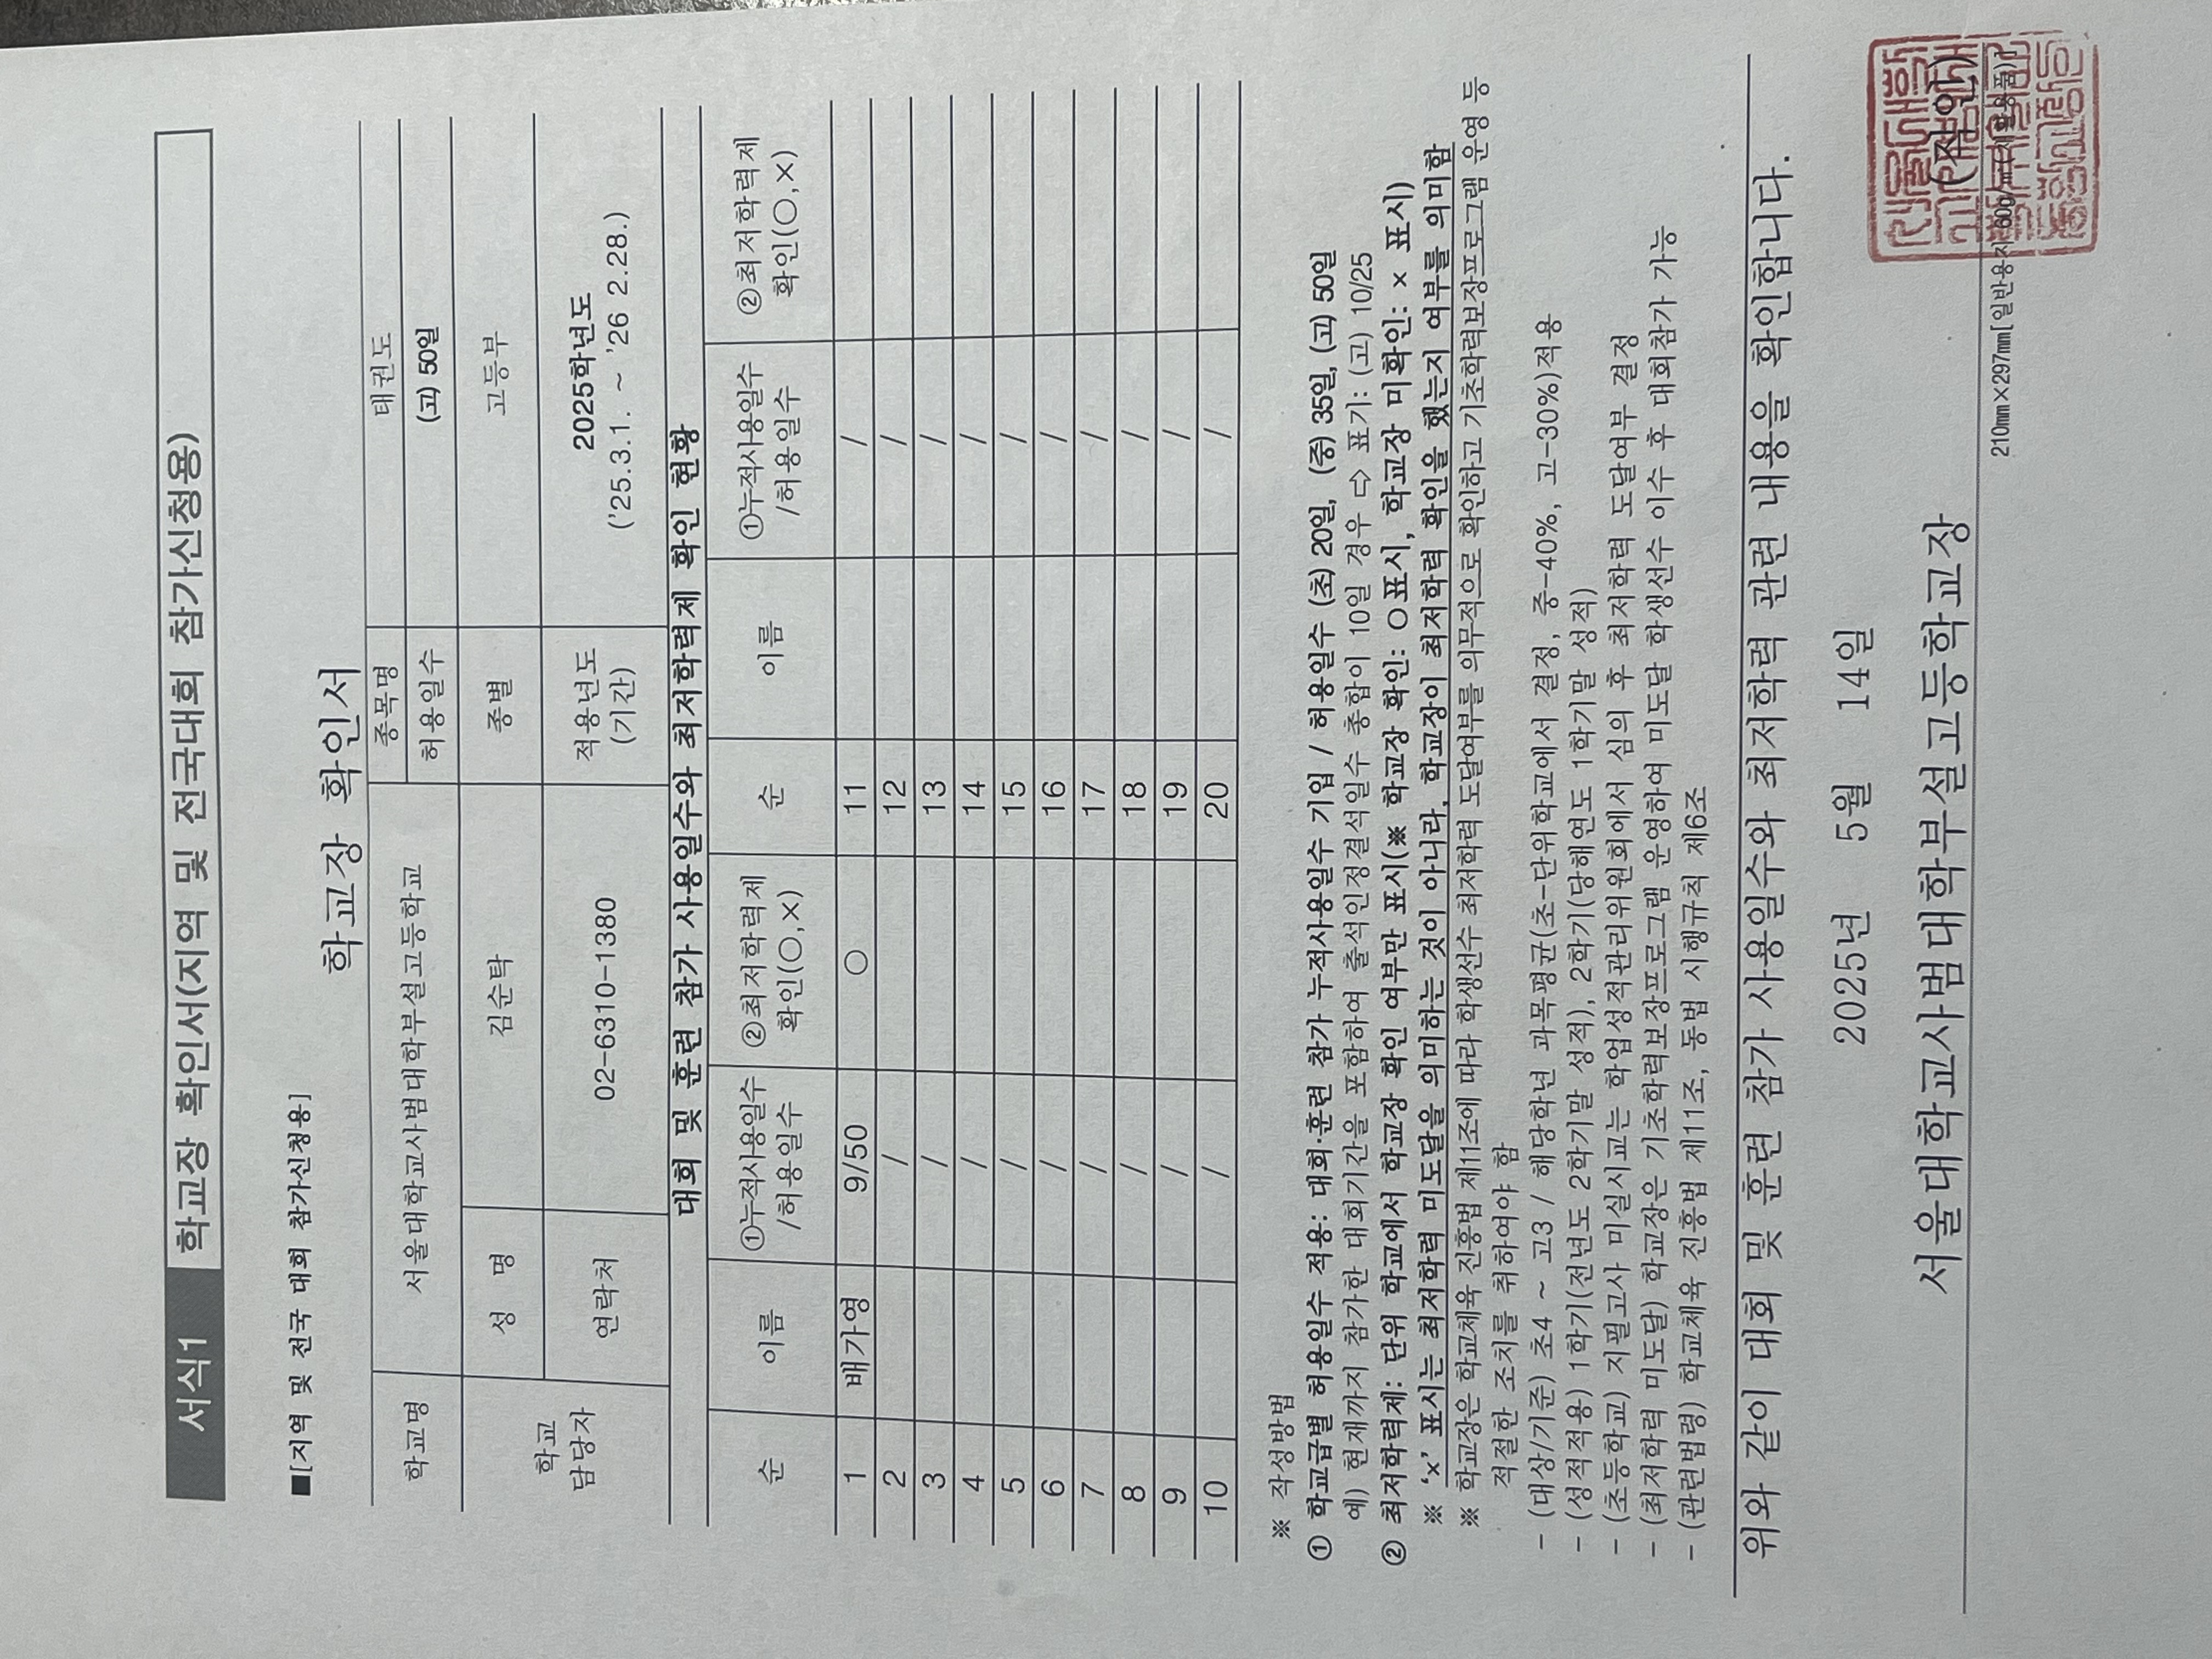 서식1 학교장 확인서(지역 및 전국대회 참가신청용)
■[지역 및 전국 대회 참가신청용]
학교장 확인서
학교명 서울대학교사범대학부설고등학교 종목명 태권도
허용일수 (고) 50일
학교 담당자 성 명 김순탁 종별 고등부
연락처 02-6310-1380 적용년도 (기간) 2025학년도
('25.3.1. ~ '26 2.28.)
대회 및 훈련 참가 사용일수와 최저학력제 확인 현황
순 이름 ①누적사용일수 /허용일수 ②최저학력제 확인(○,×) 순 이름 ①누적사용일수 /허용일수 ②최저학력제 확인(○,×)
1 배가영 9/50 ○ 11 /
2 / 12 /
3 / 13 /
4 / 14 /
5 / 15 /
6 / 16 /
7 / 17 /
8 / 18 /
9 / 19 /
10 / 20 /
※ 작성방법
① 학교급별 허용일수 적용: 대회·훈련 참가 누적사용일수 기입 / 허용일수 (초) 20일, (중) 35일, (고) 50일
예) 현재까지 참가한 대회기간을 포함하여 출석인정결석일수 총합이 10일 경우 ⇨ 표기: (고) 10/25
② 최저학력제: 단위 학교에서 학교장 확인 여부만 표시(※ 학교장 확인: ○표시, 학교장 미확인: × 표시)
※ ‘×’ 표시는 최저학력 미도달을 의미하는 것이 아니라, 학교장이 최저학력 확인을 했는지 여부를 의미함
※ 학교장은 학교체육 진흥법 제11조에 따라 학생선수 최저학력 도달여부를 의무적으로 확인하고 기초학력보장프로그램 운영 등
적절한 조치를 취하여야 함
- (대상/기준) 초4 ~ 고3 / 해당학년 과목평균(초-단위학교에서 결정, 중-40%, 고-30%)적용
- (성적적용) 1학기(전년도 2학기말 성적), 2학기(당해연도 1학기말 성적)
- (초등학교) 지필고사 미실시교는 학업성적관리위원회에서 심의 후 최저학력 도달여부 결정
- (최저학력 미도달) 학교장은 기초학력보장프로그램 운영하여 미도달 학생선수 이수 후 대회참가 가능
- (관련법령) 학교체육 진흥법 제11조, 동법 시행규칙 제6조
위와 같이 대회 및 훈련 참가 사용일수와 최저학력 관련 내용을 확인합니다.
2025년 5월 14일
서울대학교사범대학부설고등학교장 (직인)
210㎜×297㎜[일반용지 60g/㎡(재활용품)]